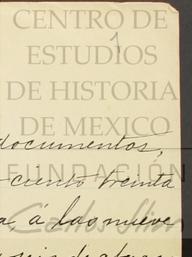 CENTRO DE
1
ESTUDIOS
DE HISTORIA
DE MEXICO
documentos,
FUNDACIÓN
ciento treinta
Carlos Slim
a, á las nueve